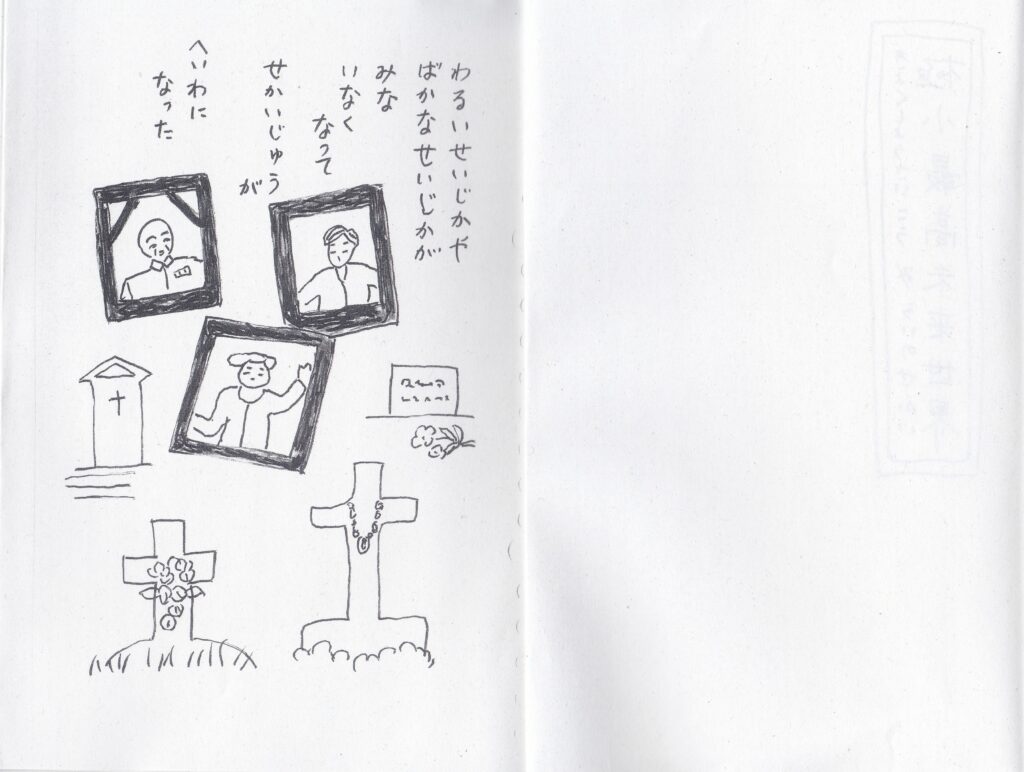 わるいせいじかや
ばかなせいじかが
みな
いなく
なって
せかいじゅう
が
へいわに
なった